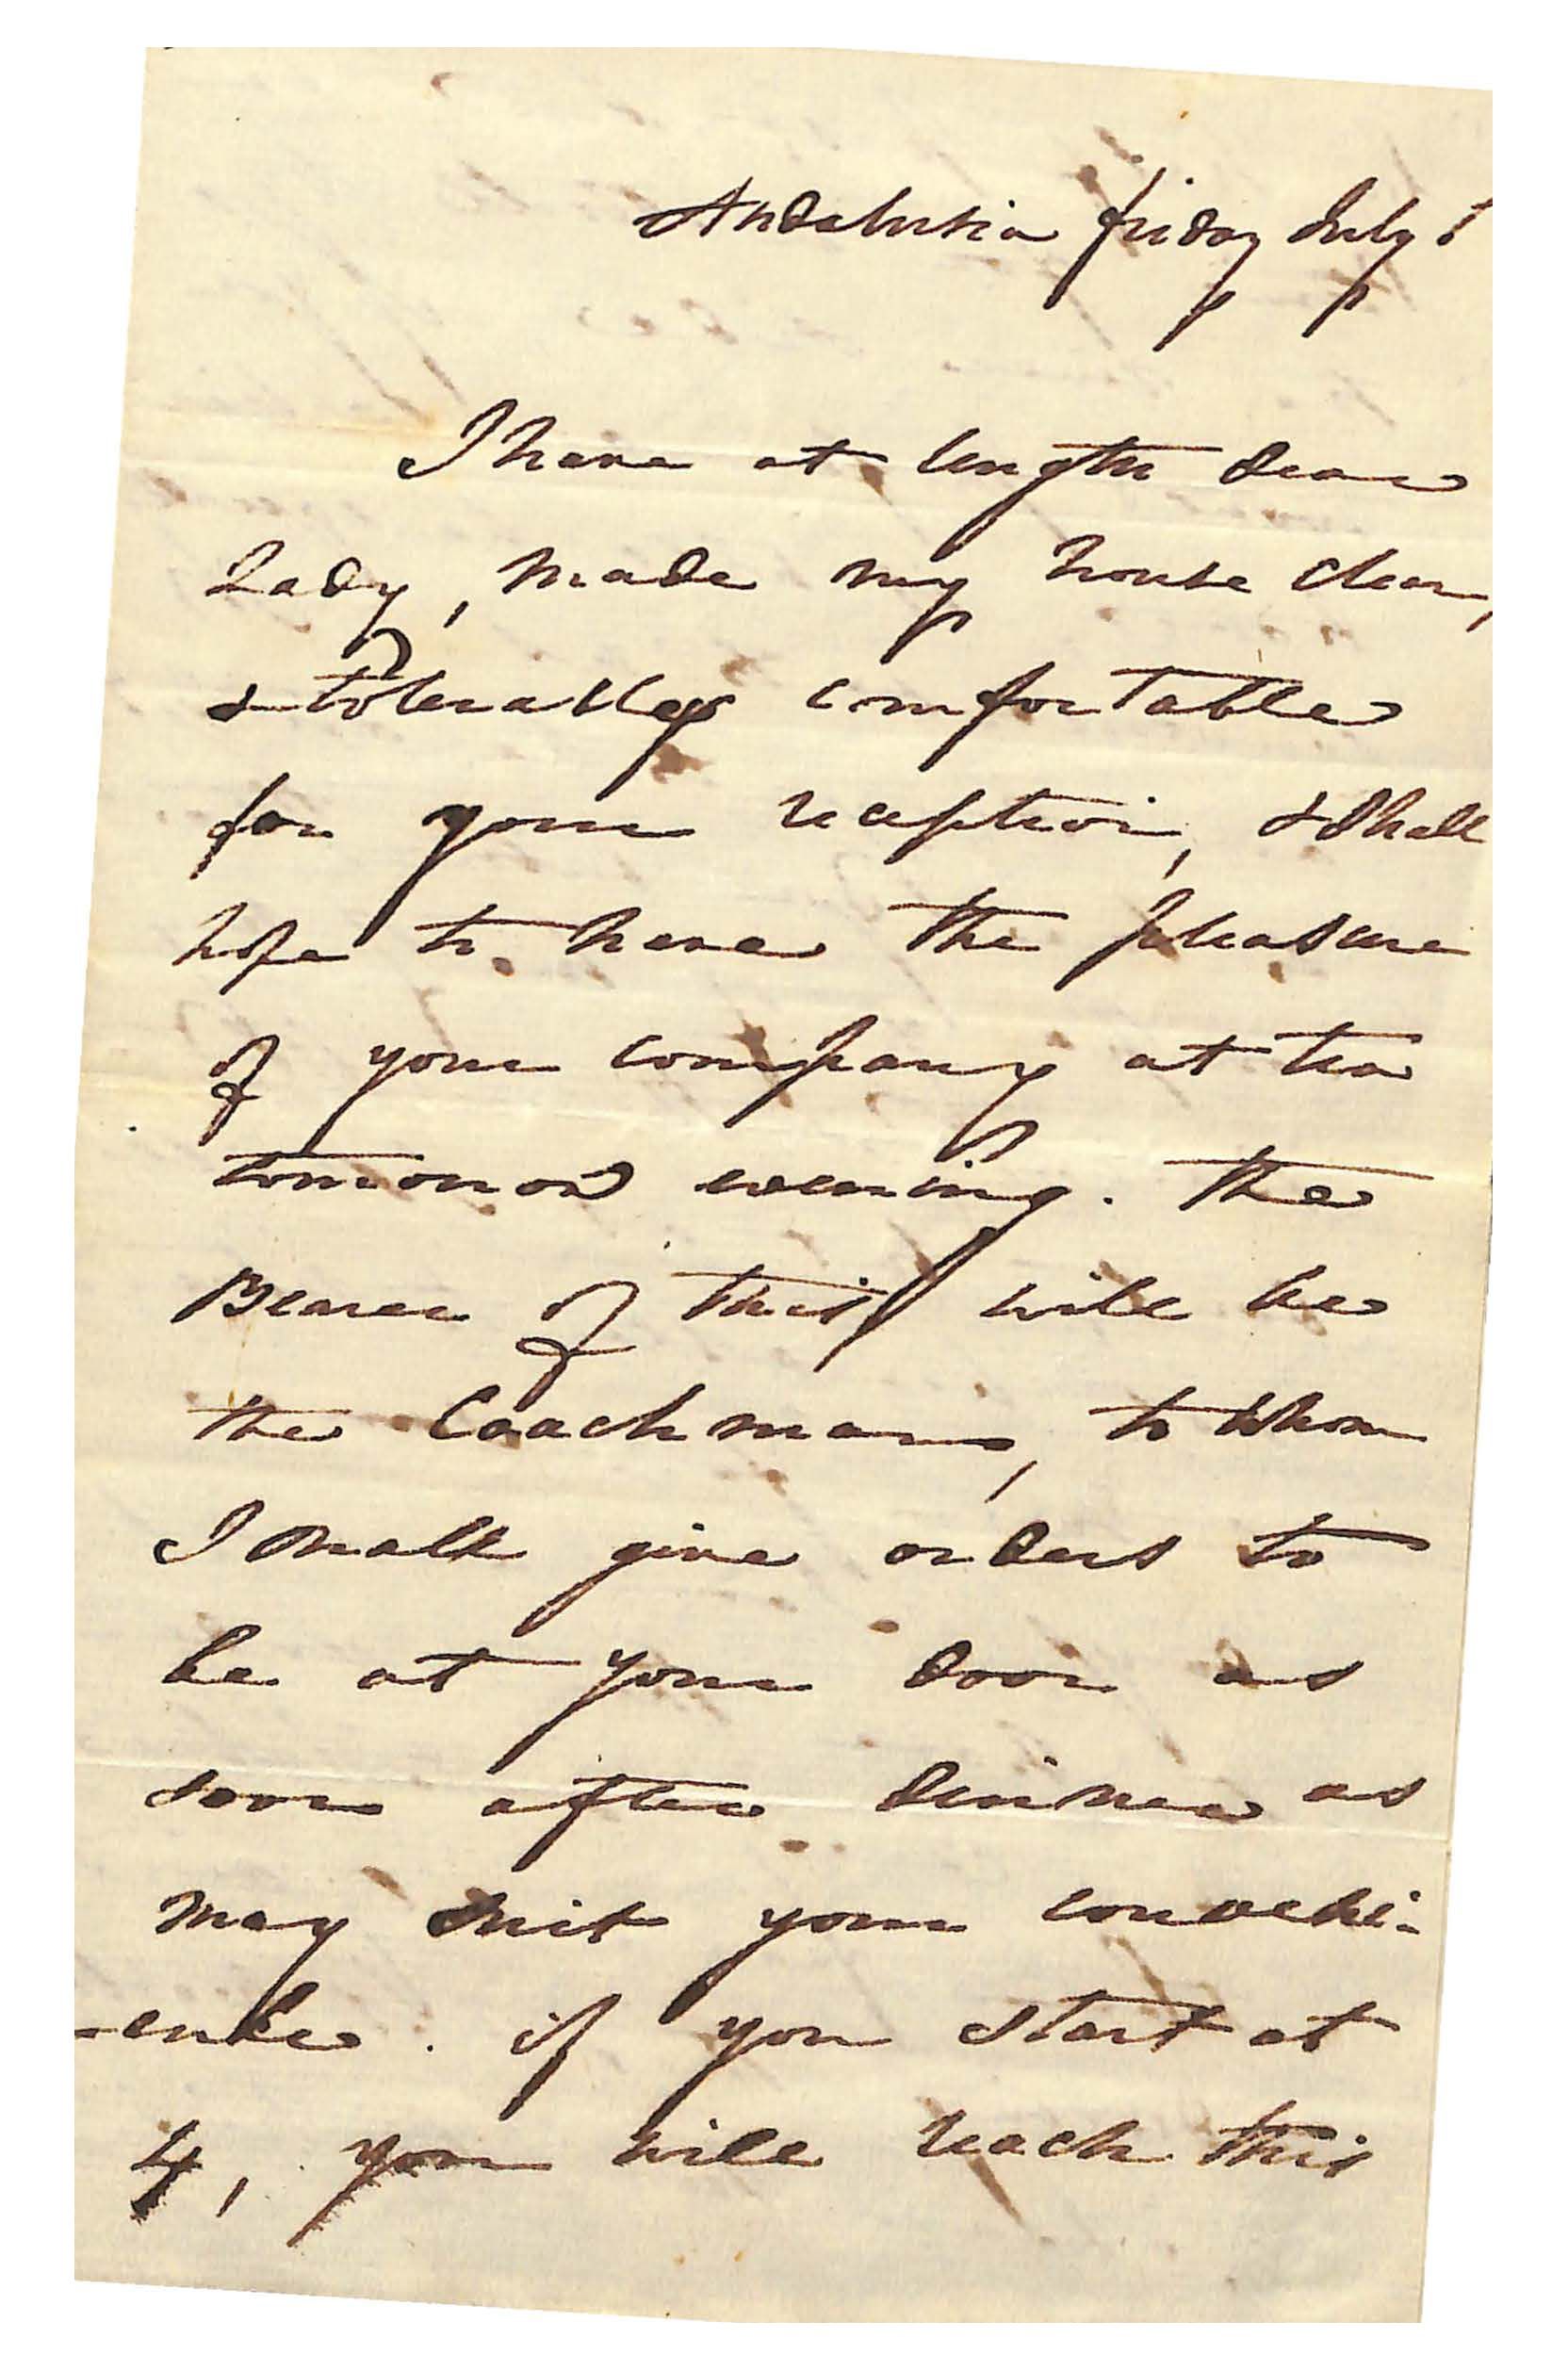 Andalusia friday July 1
I have at length dear
Lady, made my house clean,
& tolerably comfortable
for your reception, & shall
hope to have the pleasure
of your company at tea
tomorrow evening. The
Bearer of this will be
the Coachman, to whom
I shall give orders to
be at your door as
soon after dinner as
may suit your conveni-
-ence. if you start at
4, you will reach this